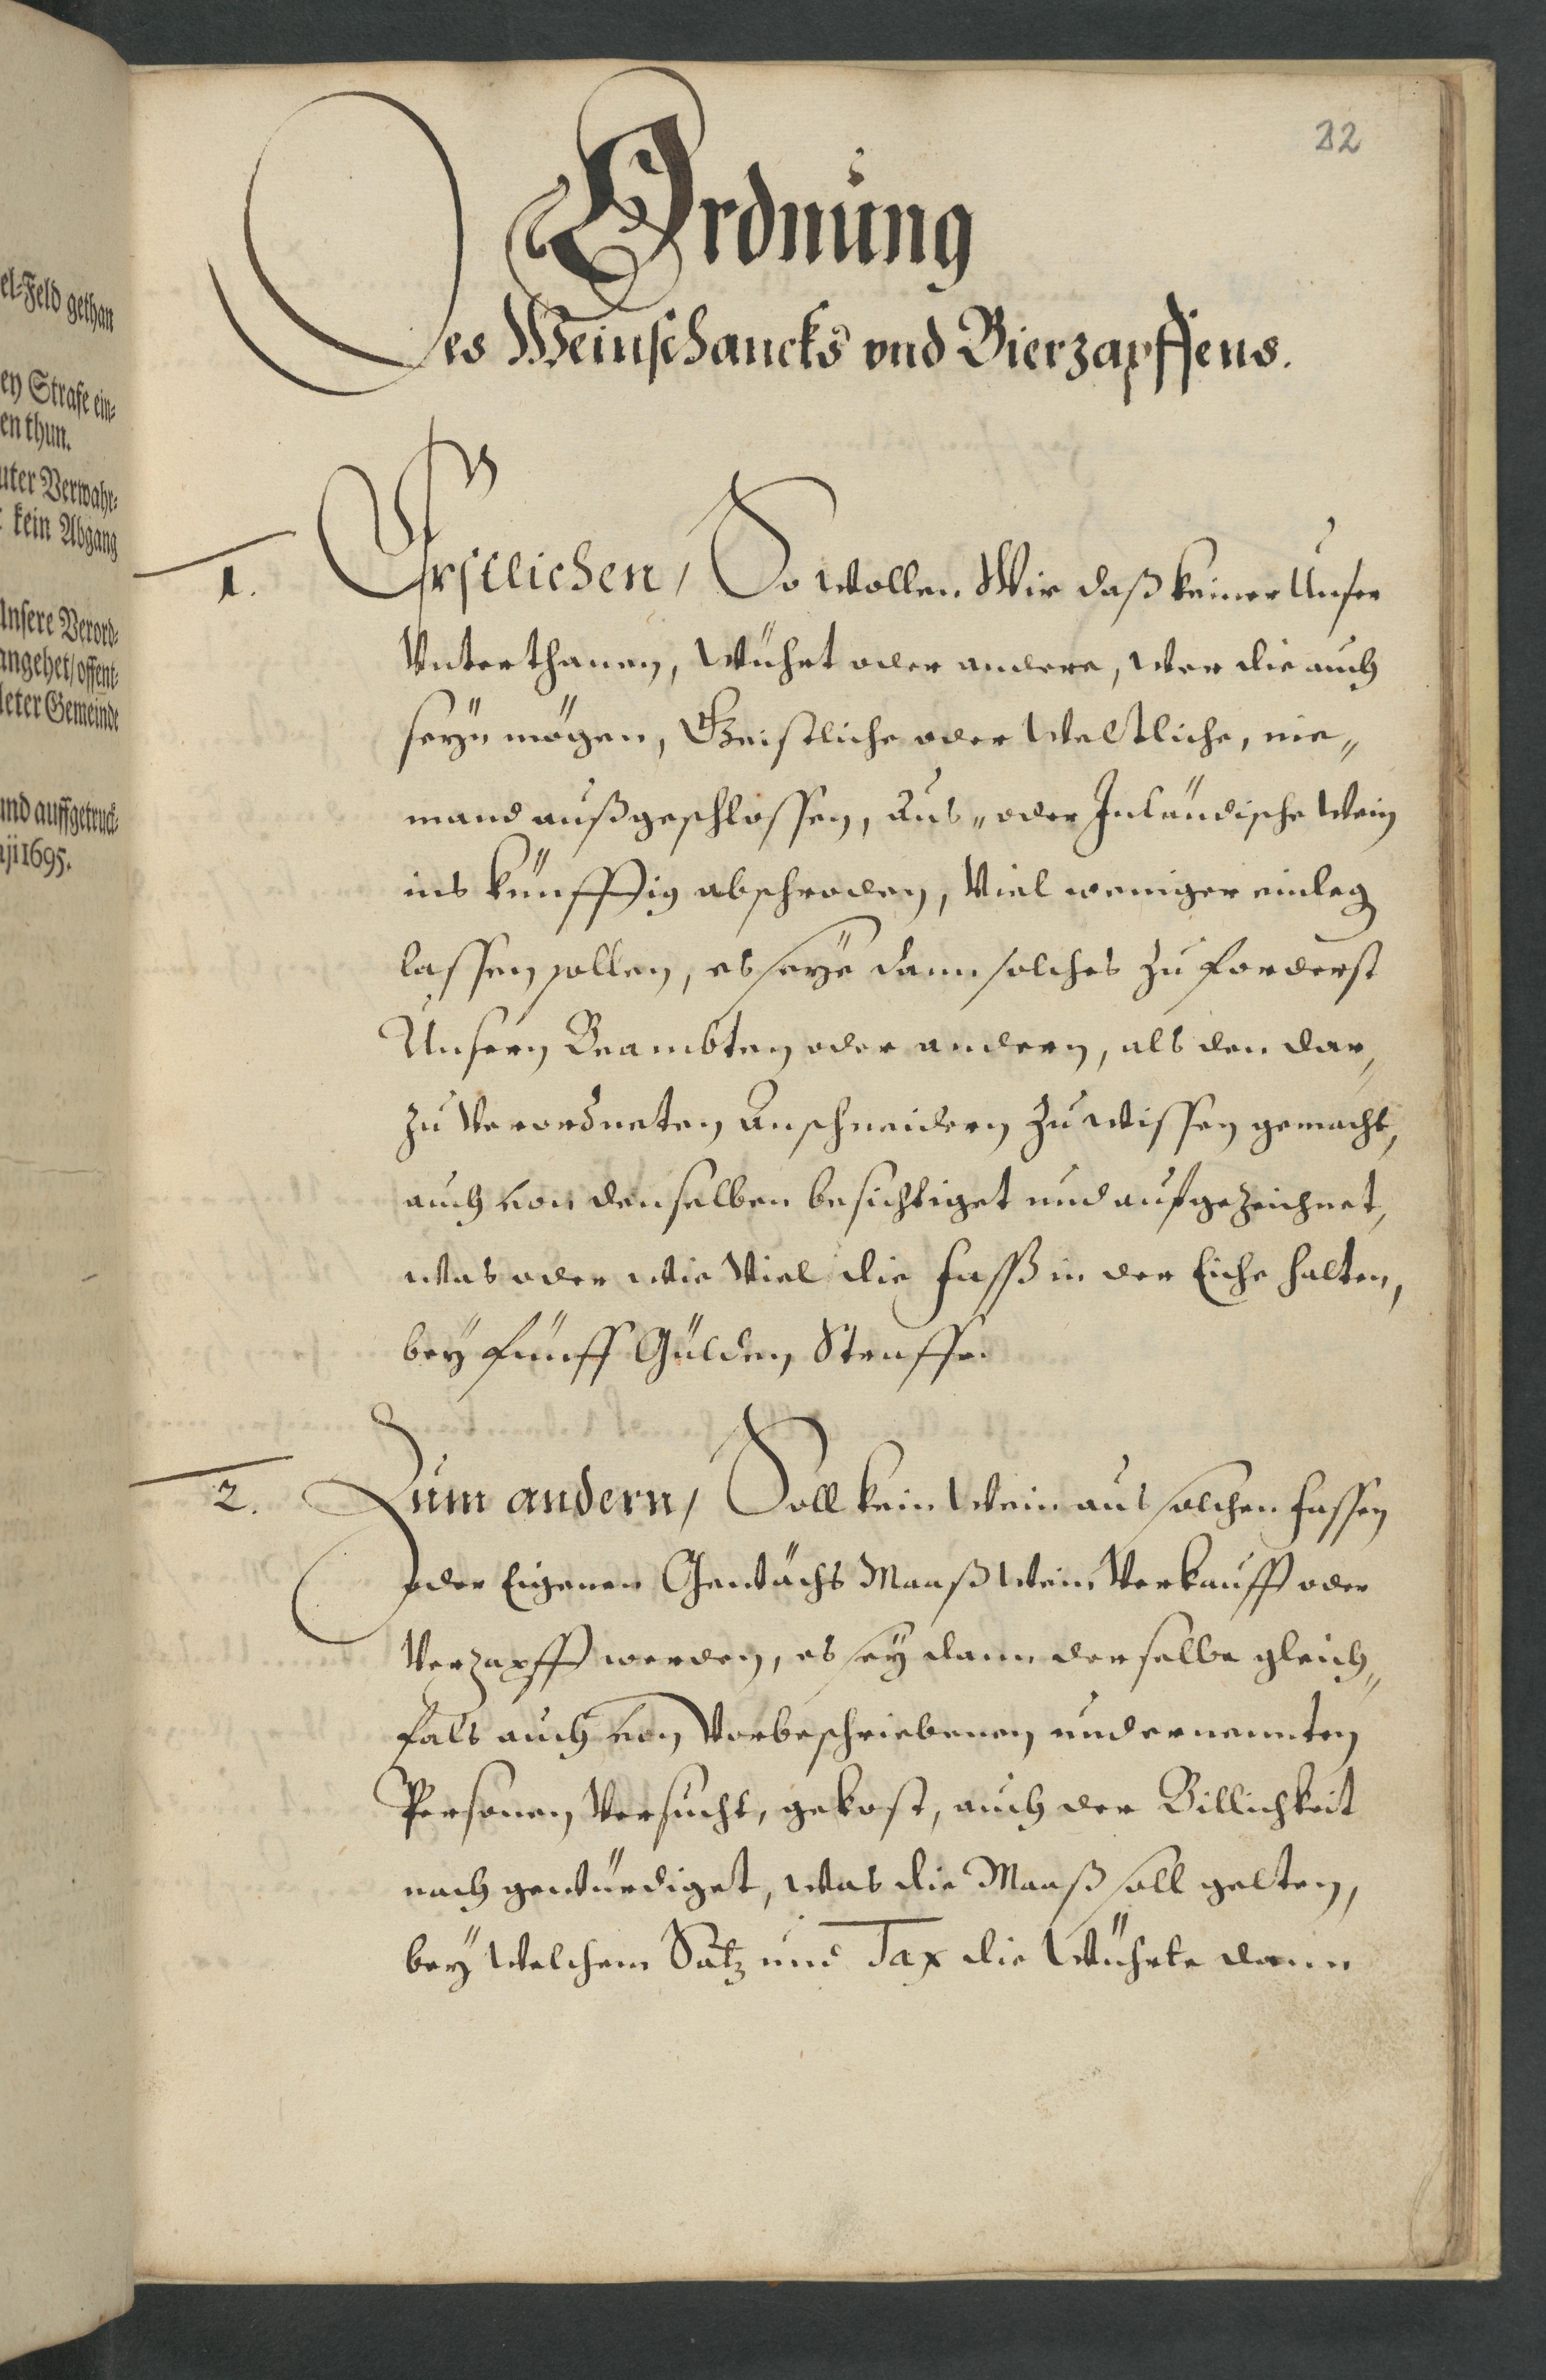 el-Feld gethan
ey Strafe ein-
en thun.
uter Verwahr-
kein Abgang
Unsere Verord-
angehet / offent-
leter Gemeinde
und auffgetruck-
1695.
32
Ordnung
Des Weinschancks vnd Bierzapffens.
1. Erstlichen / So wollen Wir daß keiner Unser
Vnterthanen, Würth oder andere, wer die auch
seyn mögen, Geistliche oder Weltliche, nie„
mand außgeschlossen, Aus„ oder Inländische Wein
ins künfftig abschroden, Viel weniger einleg
lassen sollen, es seye dann solches zu forderst
Unsern Beambten oder andern, als den dar„
zu Verordneten Anschneidern zu wissen gemacht,
auch von denselben besichtiget und aufgezeichnet,
was oder wie Viel die Fasß in der Eiche halten,
bey fünff Gülden Straffe.
2. Zum andern / Soll kein Wein aus solchen Fassen
oder Eigenen Gewächs Maaß Wein Verkaufft oder
Verzapfft werden, es sey dann derselbe gleich„
fals auch von Vorbeschriebenen und ernennten
Personen Versucht, gekost, auch der Billichkeit
nach gewürdiget, was die Maaß soll gelten,
bey welchem Satz und Tax die Würthe dann